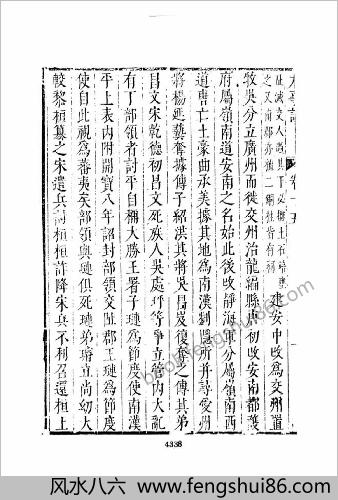 建安中改爲交州置
牧吳分立廣州而徙交州治龍編縣唐初改安南都護
府屬嶺南道安南之名始此後改靜海軍分屬嶺南西
道唐亡土豪曲承美據其地爲南漢劉隱所并詩愛州
將楊延藝奪據傳子紹洪其將吳昌岌復奪之傳其弟
昌文宋乾德初昌文死族人吳處玶等爭立管內大亂
有丁部領者討平之自稱大勝王署子璉爲節度使南漢
平上表內附開寶八年詔封部領交阯郡王璉爲節度
使自此視爲蕃夷矣部領與璉俱死璉弟璿立尚幼大
校黎桓篡之宋遣兵討桓桓許降宋兵不利召還桓上
4338
baoku.fengshui86.com
风水八六-www.fengshui86.com